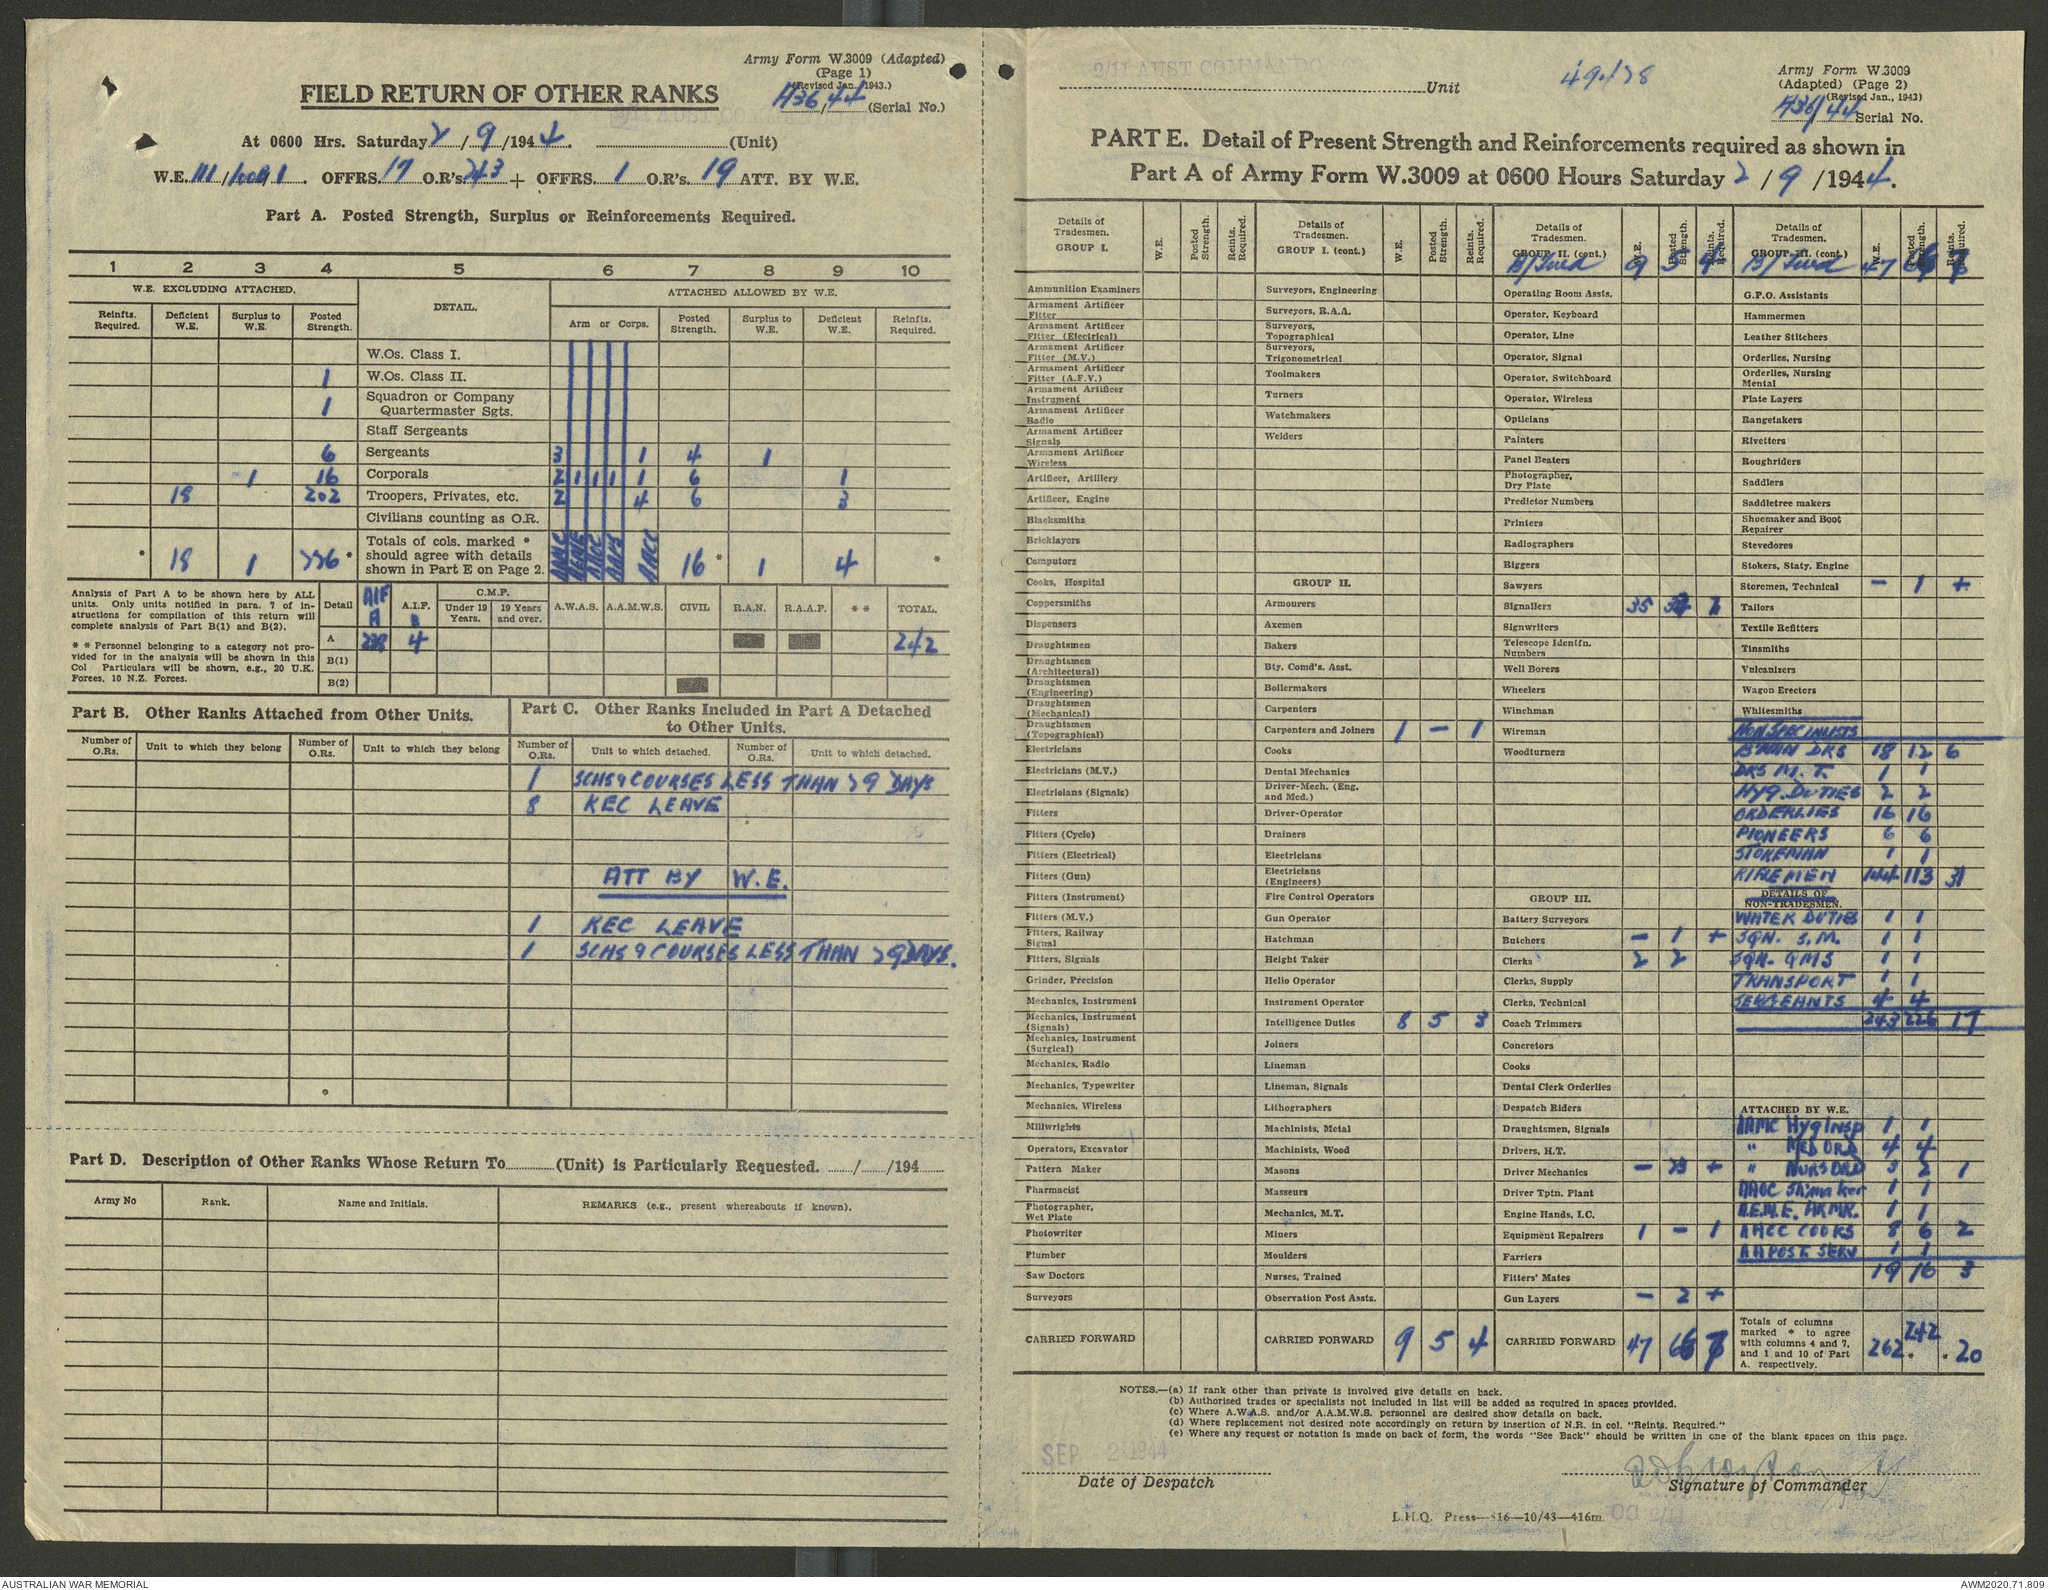 Army Form W.3009 (Adapted)
(Page 1)
(Revised Jan., 1943.)
A36/44 (Serial No.)
FIELD RETURN OF OTHER RANKS
At 0600 Hrs. Saturday 2/9/1944. (Unit)
W.E. 111/ OFFRS. 17 O.R's. 243 + OFFRS. 1 O.R's. 19 ATT. BY W.E.
Part A. Posted Strength, Surplus or Reinforcements Required.
1 2 3 4 5 6 7 8 9 10
W.E. EXCLUDING ATTACHED. DETAIL. ATTACHED ALLOWED BY W.E.
Reinfts. Required. Deficient W.E. Surplus to W.E. Posted Strength. Arm or Corps. Posted Strength. Surplus to W.E. Deficient W.E. Reinfts. Required.
W.Os. Class I.
1 W.Os. Class II.
1 Squadron or Company Quartermaster Sgts.
Staff Sergeants
6 Sergeants 3 1 4 1
1 16 Corporals 2 1 1 1 1 6 1
18 202 Troopers, Privates, etc. 2 4 6 3
Civilians counting as O.R.
* 18 1 226 * Totals of cols. marked * should agree with details shown in Part E on Page 2. AAMC AEME AACC 16 * 1 4 *
Analysis of Part A to be shown here by ALL units. Only units notified in para. 7 of instructions for compilation of this return will complete analysis of Part B(1) and B(2).
* * Personnel belonging to a category not provided for in the analysis will be shown in this Col Particulars will be shown, e.g., 20 U.K. Forces, 10 N.Z. Forces.
Detail AIF A A.I.F. B C.M.F. Under 19 Years. 19 Years and over. A.W.A.S. A.A.M.W.S. CIVIL R.A.N. R.A.A.F. * * TOTAL.
A 238 4 242
B(1)
B(2)
Part B. Other Ranks Attached from Other Units.
Number of O.Rs. Unit to which they belong Number of O.Rs. Unit to which they belong
Part C. Other Ranks Included in Part A Detached to Other Units.
Number of O.Rs. Unit to which detached. Number of O.Rs. Unit to which detached.
1 SCHS & COURSES LESS THAN 29 DAYS
8 REC LEAVE
ATT BY W.E.
1 REC LEAVE
1 SCHS & COURSES LESS THAN 29 DAYS.
Part D. Description of Other Ranks Whose Return To (Unit) is Particularly Requested. / /194
Army No Rank. Name and Initials. REMARKS (e.g., present whereabouts if known).
2/11 AUST COMMANDO Unit
Army Form W.3009
(Adapted) (Page 2)
(Revised Jan., 1943)
A36/44 Serial No.
PART E. Detail of Present Strength and Reinforcements required as shown in
Part A of Army Form W.3009 at 0600 Hours Saturday 2/9/1944.
Details of Tradesmen. GROUP I. W.E. Posted Strength. Reints. Required.
Ammunition Examiners
Armament Artificer Fitter
Armament Artificer Fitter (Electrical)
Armament Artificer Fitter (M.V.)
Armament Artificer Fitter (A.F.V.)
Armament Artificer Instrument
Armament Artificer Radio
Armament Artificer Signals
Armament Artificer Wireless
Artificer, Artillery
Artificer, Engine
Blacksmiths
Bricklayers
Computors
Cooks, Hospital
Coppersmiths
Dispensers
Draughtsmen
Draughtsmen (Architectural)
Draughtsmen (Engineering)
Draughtsmen (Mechanical)
Draughtsmen (Topographical)
Electricians
Electricians (M.V.)
Electricians (Signals)
Fitters
Fitters (Cycle)
Fitters (Electrical)
Fitters (Gun)
Fitters (Instrument)
Fitters (M.V.)
Fitters, Railway Signal
Fitters, Signals
Grinder, Precision
Mechanics, Instrument
Mechanics, Instrument (Signals)
Mechanics, Instrument (Surgical)
Mechanics, Radio
Mechanics, Typewriter
Mechanics, Wireless
Millwrights
Operators, Excavator
Pattern Maker
Pharmacist
Photographer, Wet Plate
Photowriter
Plumber
Saw Doctors
Surveyors
CARRIED FORWARD
Details of Tradesmen. GROUP I. (cont.) W.E. Posted Strength. Reints. Required.
Surveyors, Engineering
Surveyors, R.A.A.
Surveyors, Topographical
Surveyors, Trigonometrical
Toolmakers
Turners
Watchmakers
Welders
GROUP II.
Armourers
Axemen
Bakers
Bty. Comd's. Asst.
Boilermakers
Carpenters
Carpenters and Joiners 1 – 1
Cooks
Dental Mechanics
Driver-Mech. (Eng. and Med.)
Driver-Operator
Drainers
Electricians
Electricians (Engineers)
Fire Control Operators
Gun Operator
Hatchman
Height Taker
Helio Operator
Instrument Operator
Intelligence Duties 8 5 3
Joiners
Lineman
Lineman, Signals
Lithographers
Machinists, Metal
Machinists, Wood
Masons
Masseurs
Mechanics, M.T.
Miners
Moulders
Nurses, Trained
Observation Post Assts.
CARRIED FORWARD 9 5 4
Details of Tradesmen. GROUP II. (cont.) W.E. Posted Strength. Reints. Required.
B/Fwd 9 5 4
Operating Room Assts.
Operator, Keyboard
Operator, Line
Operator, Signal
Operator, Switchboard
Operator, Wireless
Opticians
Painters
Panel Beaters
Photographer, Dry Plate
Predictor Numbers
Printers
Radiographers
Riggers
Sawyers
Signallers 35
Signwriters
Telescope Identfn. Numbers
Well Borers
Wheelers
Winchman
Wireman
Woodturners
GROUP III.
Battery Surveyors
Butchers – 1 +
Clerks 2 2
Clerks, Supply
Clerks, Technical
Coach Trimmers
Concretors
Cooks
Dental Clerk Orderlies
Despatch Riders
Draughtsmen, Signals
Drivers, H.T.
Driver Mechanics – +
Driver Tptn. Plant
Engine Hands, I.C.
Equipment Repairers 1 – 1
Farriers
Fitters' Mates
Gun Layers – 2 +
CARRIED FORWARD 47
Details of Tradesmen. GROUP III. (cont.) W.E. Posted Strength. Reints. Required.
B/Fwd 47
G.P.O. Assistants
Hammermen
Leather Stitchers
Orderlies, Nursing
Orderlies, Nursing Mental
Plate Layers
Rangetakers
Rivetters
Roughriders
Saddlers
Saddletree makers
Shoemaker and Boot Repairer
Stevedores
Stokers, Staty. Engine
Storemen, Technical – 1 +
Tailors
Textile Refitters
Tinsmiths
Vulcanizers
Wagon Erectors
Whitesmiths
NON SPECIALISTS
B'MAN DRS 18 12 6
DRS M.T. 1 1
HYG. DUTIES 2 2
ORDERLIES 16 16
PIONEERS 6 6
STOREMAN 1 1
RIFLEMEN 144 113 31
DETAILS OF NON-TRADESMEN.
WATER DUTIES 1 1
SQN. S.M. 1 1
SQN. QMS 1 1
TRANSPORT 1 1
SERGEANTS 4 4
243 226 17
ATTACHED BY W.E.
AAMC Hyg Insp 1 1
" MED ORD 4 4
" NURS ORD 3 2 1
AAOC Sh'maker 1 1
A.E.M.E. ARMR. 1 1
AACC COOKS 8 6 2
AA POST. SERV 1 1
19 16 3
Totals of columns marked * to agree with columns 4 and 7, and 1 and 10 of Part A. respectively. 262 242 * * 20
NOTES.—(a) If rank other than private is involved give details on back.
(b) Authorised trades or specialists not included in list will be added as required in spaces provided.
(c) Where A.W.A.S. and/or A.A.M.W.S. personnel are desired show details on back.
(d) Where replacement not desired note accordingly on return by insertion of N.R. in col. "Reints. Required."
(e) Where any request or notation is made on back of form, the words "See Back" should be written in one of the blank spaces on this page.
SEP 2 1944
Date of Despatch
Signature of Commander
L.H.Q. Press—816—10/43—416m.
OC 2/11 AUST
AUSTRALIAN WAR MEMORIAL
AWM2020.71.809